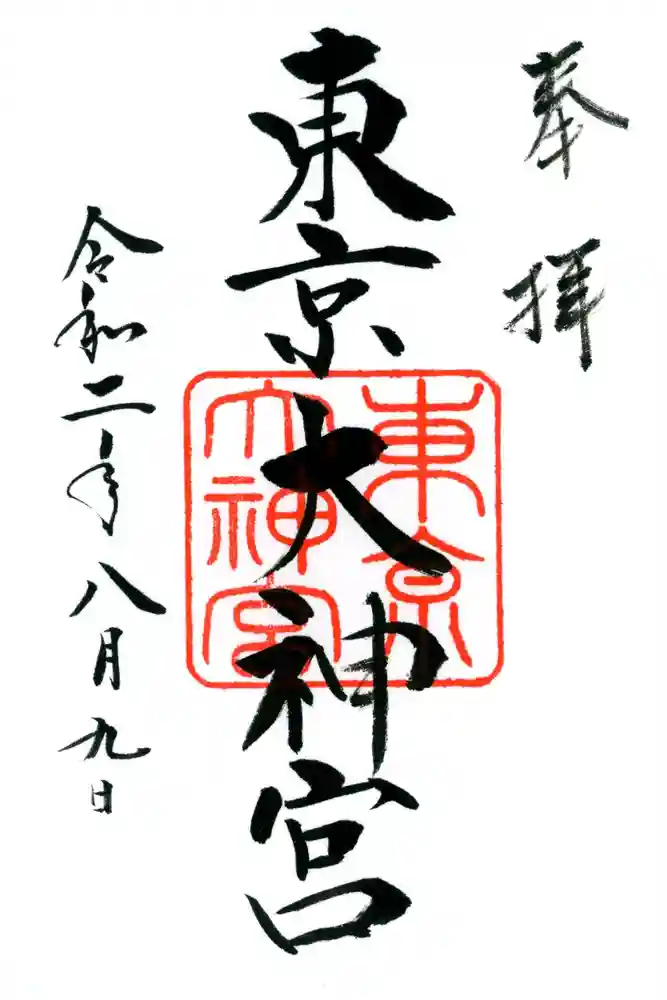 奉拝
東京大神宮
東京大神宮
令和二年八月九日